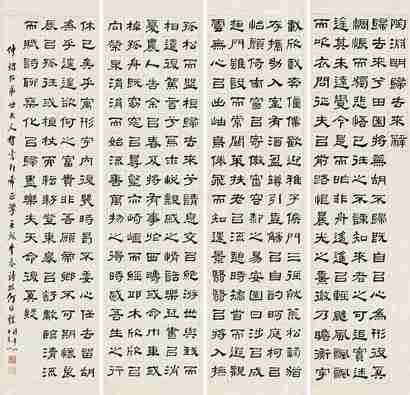 陶淵明歸去來辭
歸去來兮田園將蕪胡不歸既自以心爲形役奚
惆悵而獨悲悟已往之不諫知來者之可追實迷
途其未遠覺今是而昨非舟搖搖以輕颺風飄飄
而吹衣問征夫以前路恨晨光之熹微乃瞻衡宇
載欣載奔僮僕歡迎稚子候門三徑就荒松菊猶
存攜幼入室有酒盈樽引壺觴以自酌眄庭柯以
怡顏倚南窗以寄傲審容膝之易安園日涉以成
趣門雖設而常關策扶老以流憩時矯首而遐觀
雲無心以出岫鳥倦飛而知還景翳翳以將入撫
孤松而盤桓歸去來兮請息交以絕遊世與我而
相違復駕言兮焉求悅親戚之情話樂琴書以消
憂農人告余以春及將有事于西疇或命巾車或
棹孤舟既窈窕以尋壑亦崎嶇而經丘木欣欣以
向榮泉涓涓而始流善萬物之得時感吾生之行
休已矣乎寓形宇內復幾時曷不委心任去留胡
爲乎遑遑欲何之富貴非吾願帝鄉不可期懷良
辰以孤往或植杖而耘耔登東皋以舒嘯臨清流
而賦詩聊乘化以歸盡樂夫天命復奚疑